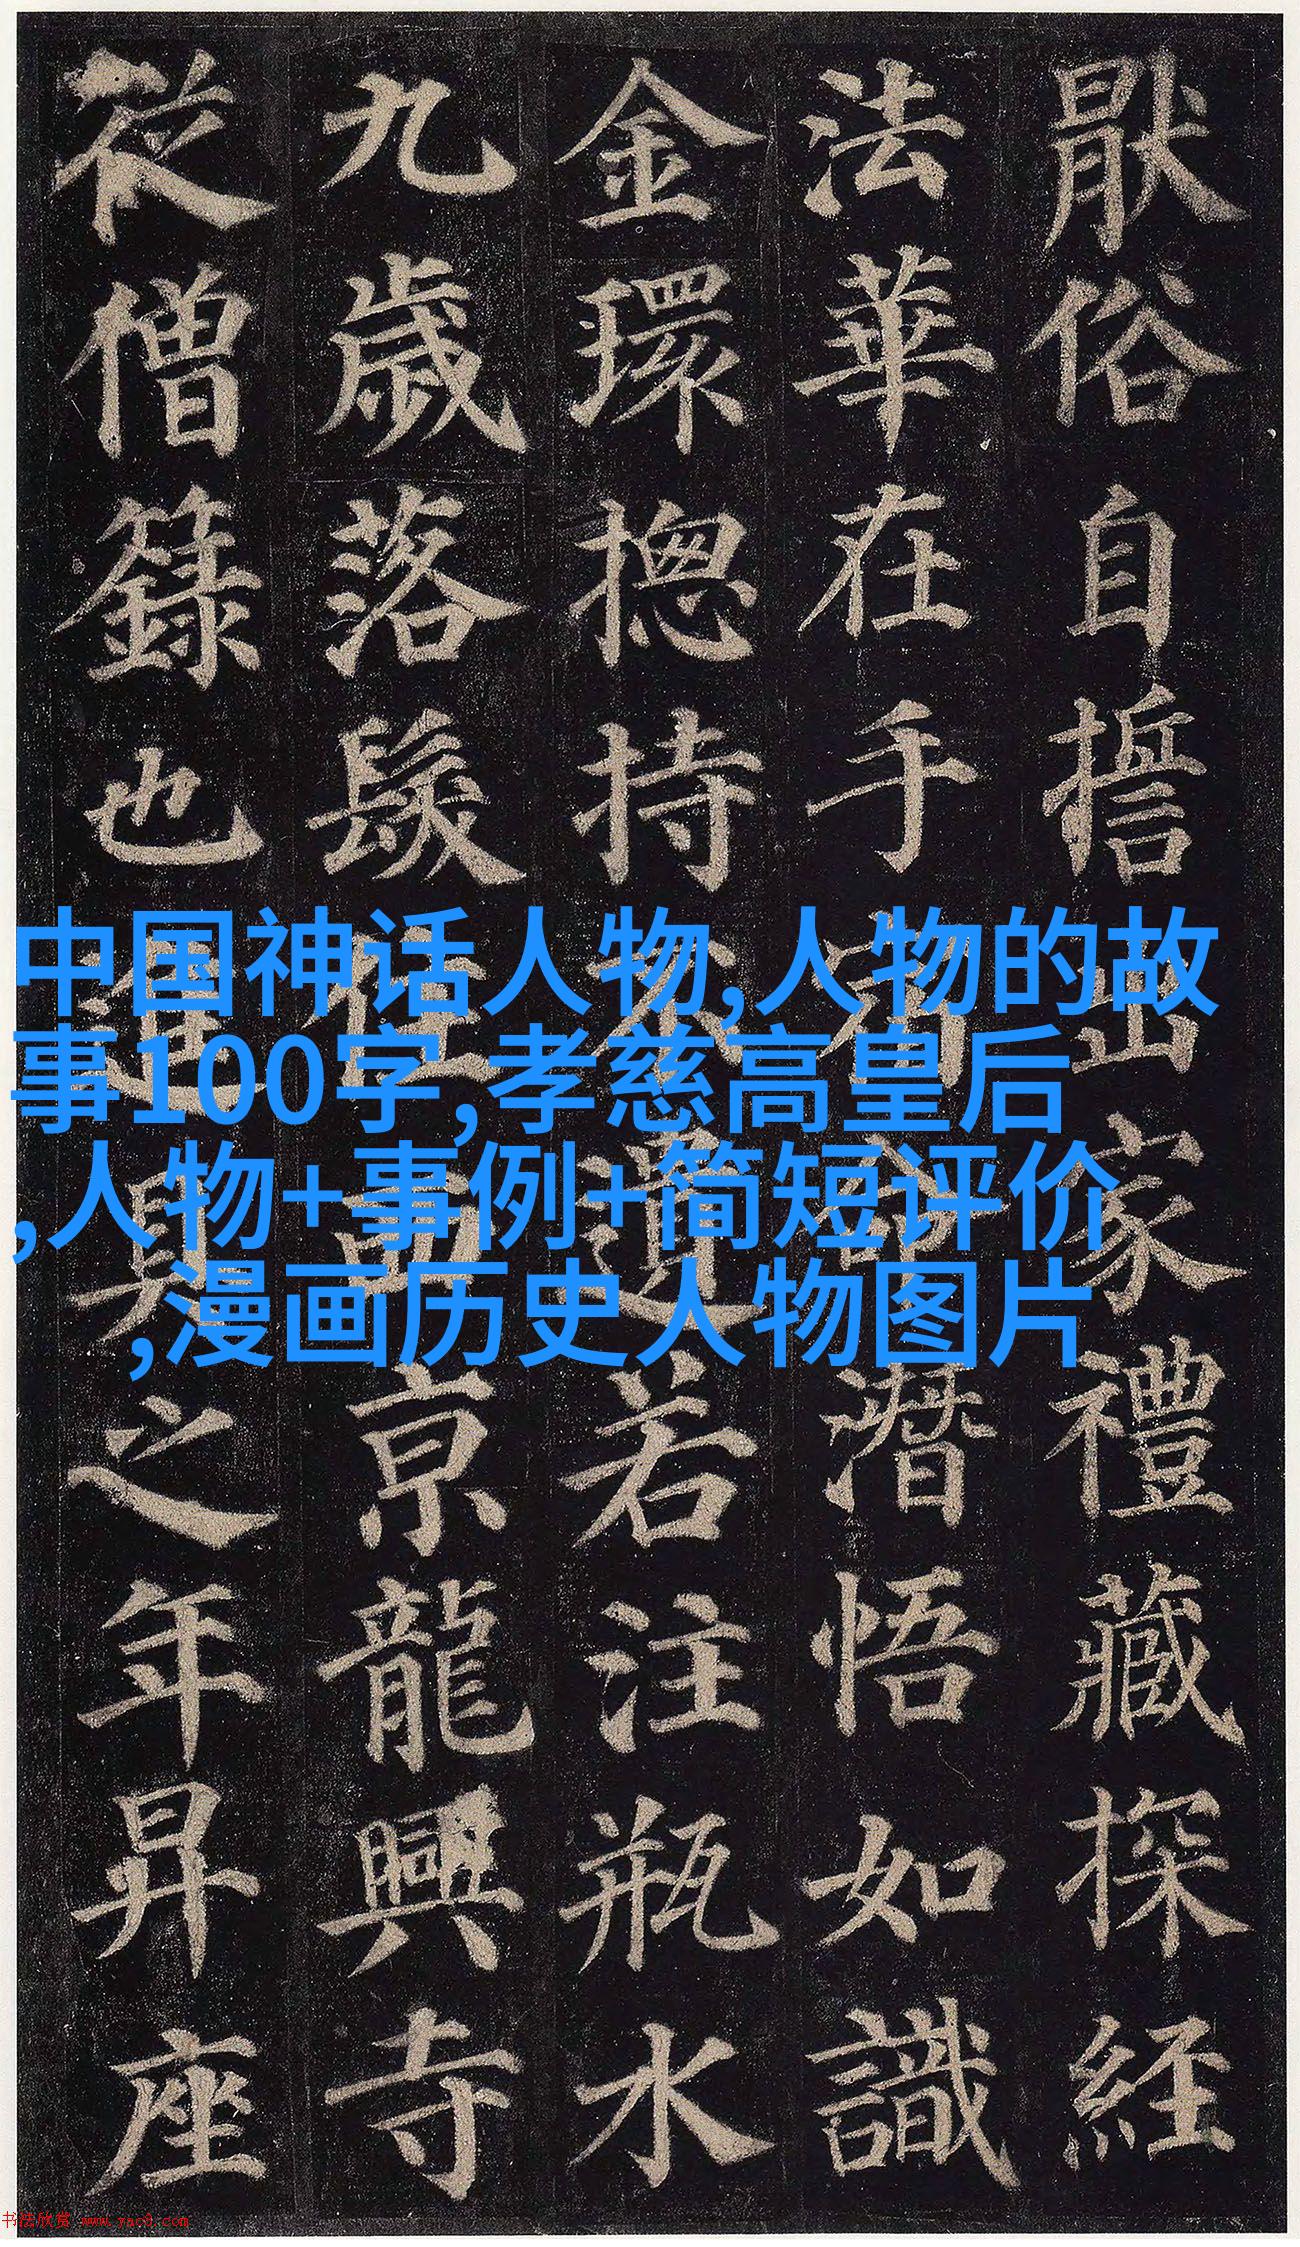 猒俗自誓出家禮藏探經
法華在手宿命潛悟如識
金環摠持不遺若注瓶水
九歲落髮住西京龍興寺
從僧籙也進具之年昇座
中国神话人物,人物的故
事100字,孝慈高皇后
,人物+事例+简短评价
,漫画历史人物图片
书法欣赏 www.yac8.com